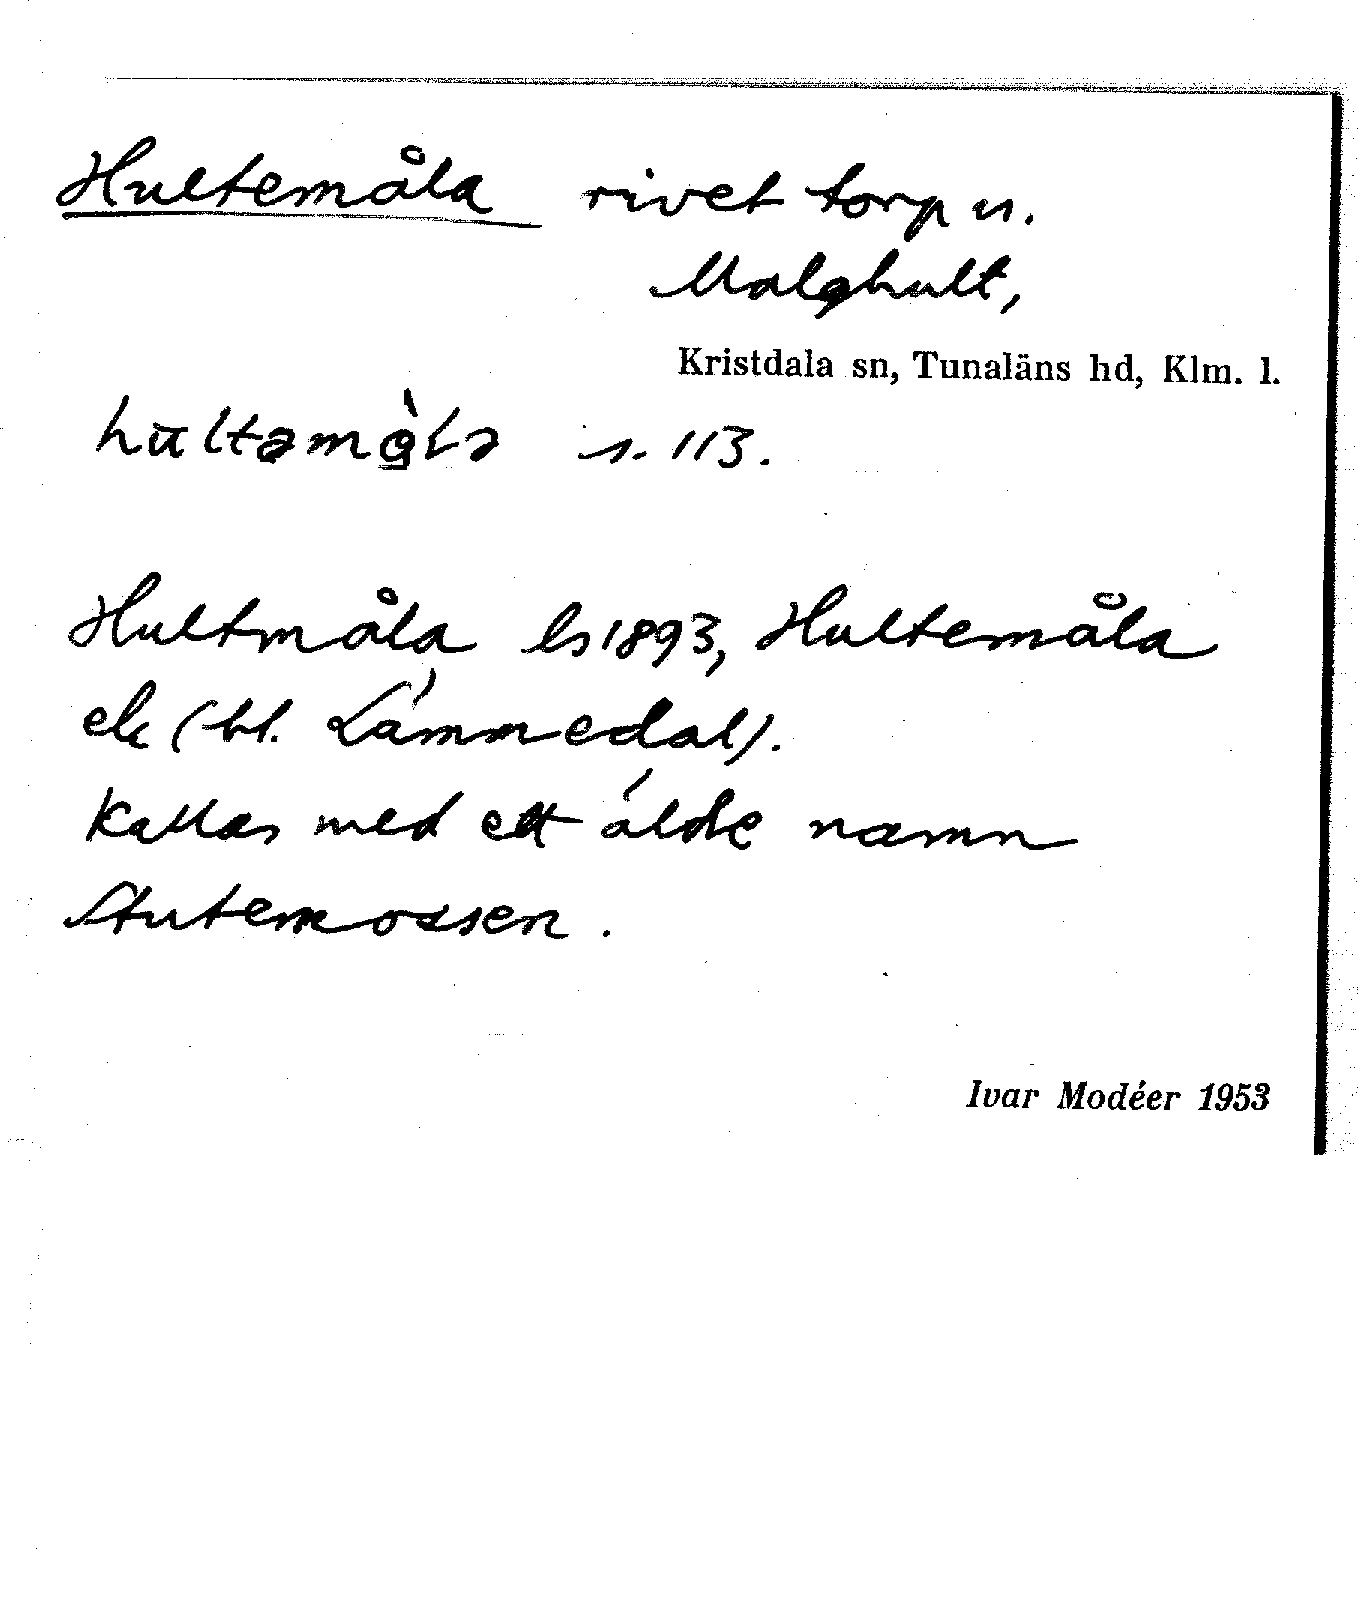 Hultemåla rivet torp u.
Malghult,
Kristdala sn, Tunaläns hd, Klm. l.
s. 113.
Hultmåla ls 1893, Hultemåla
ek (bl. Lämmedal).
Kallas med ett äldre namn
Stutemossen.
Ivar Modéer 1953